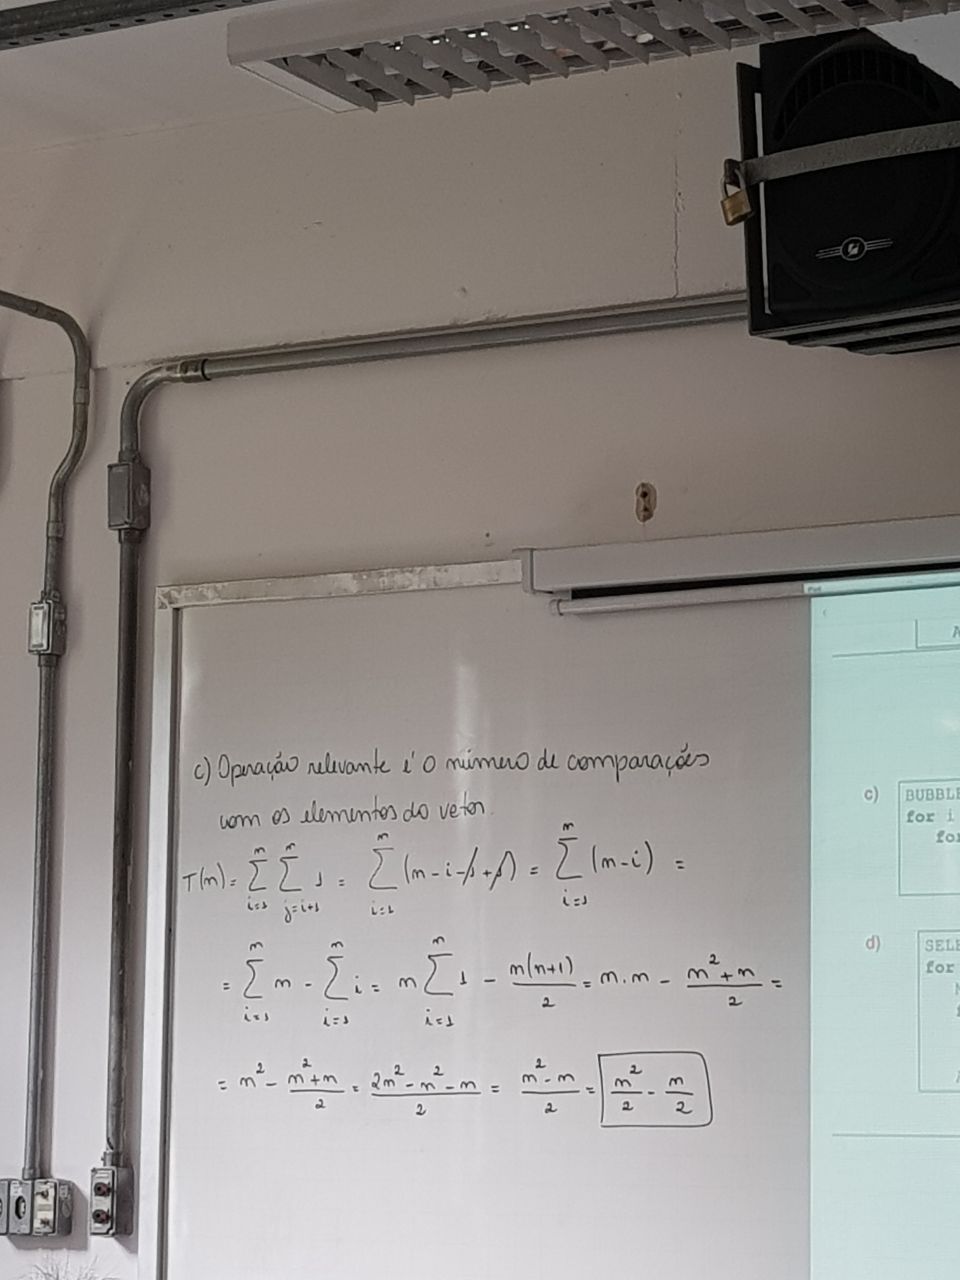 c) Operação relevante é o número de comparações
com os elementos do vetor.
T(n) = \sum_{i=1}^{n} \sum_{j=i+1}^{n} 1 = \sum_{i=1}^{n} (n-i-1+1) = \sum_{i=1}^{n} (n-i) =
= \sum_{i=1}^{n} n - \sum_{i=1}^{n} i = n \sum_{i=1}^{n} 1 - \frac{n(n+1)}{2} = n.n - \frac{n^2+n}{2} =
= n^2 - \frac{n^2+n}{2} = \frac{2n^2-n^2-n}{2} = \frac{n^2-n}{2} = \frac{n^2}{2} - \frac{n}{2}
c) BUBBLE
for i
for
d) SELE
for